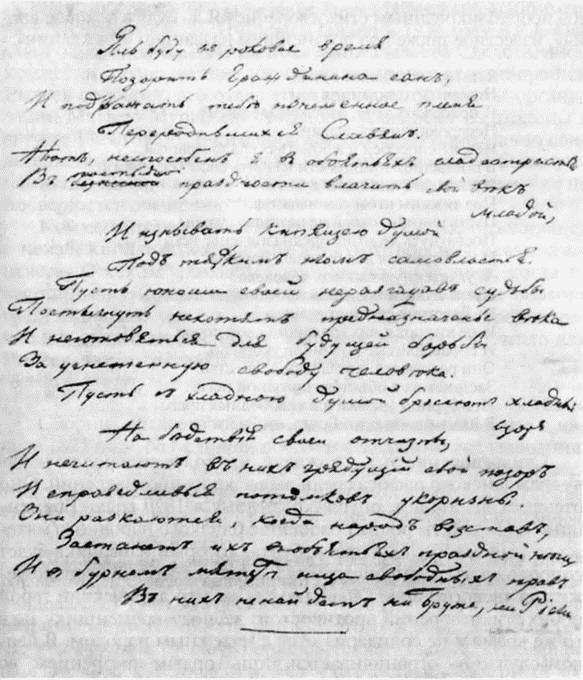 Яль буду въ роковое время
Позорить Гражданина санъ,
И подражать тебѣ изнеженное племя
Переродившихся Славянъ.
Нѣтъ, неспособенъ я въ объятьяхъ сладострастья
постыдной
Въ праздности влачить свой вѣкъ
младой,
И изнывать кипящею душой
Подъ тяжкимъ игомъ самовластья.
Пусть юноши своей неразгадавъ судьбы
Постигнуть нехотятъ предназначенье вѣка
И неготовятся для будущей борьбы
За угнетенную свободу человѣка.
Пусть съ хладною душой бросаютъ хладный
взоръ
На бедствія своей отчизны,
И нечитаютъ въ нихъ грядущій свой позоръ
И справедливыя потомковъ укоризны.
Они раскаются, когда народъ возставъ,
Застанетъ ихъ въ объятьяхъ праздной неги
И въ бурномъ мятежѣ ища свободныхъ правъ
Въ нихъ ненайдетъ ни Брута, ни Ріеги